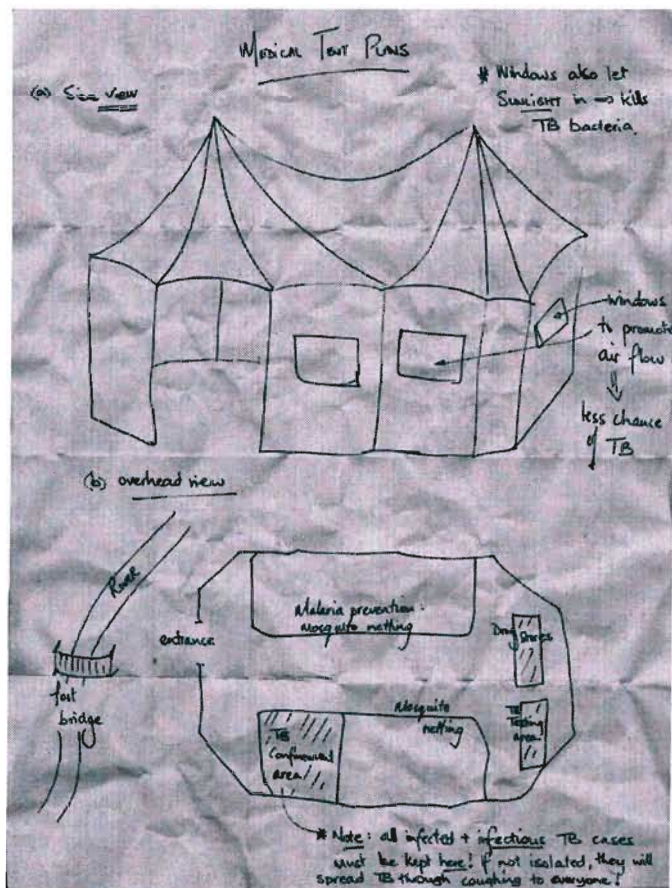 MEDICAL TENT PLANS
(a) Side view
* Windows also let
SUNLIGHT in ⇒ kills
TB bacteria.
windows
to promote
air flow
⇓
less chance
of TB
(b) overhead view
River
foot
bridge
entrance
Malaria prevention:
Mosquito netting
Drug Stores
Mosquito
netting
TB
Testing
area
TB
Confinement
area
* Note: all infected + infectious TB cases
must be kept here! If not isolated, they will
spread TB through coughing to everyone!